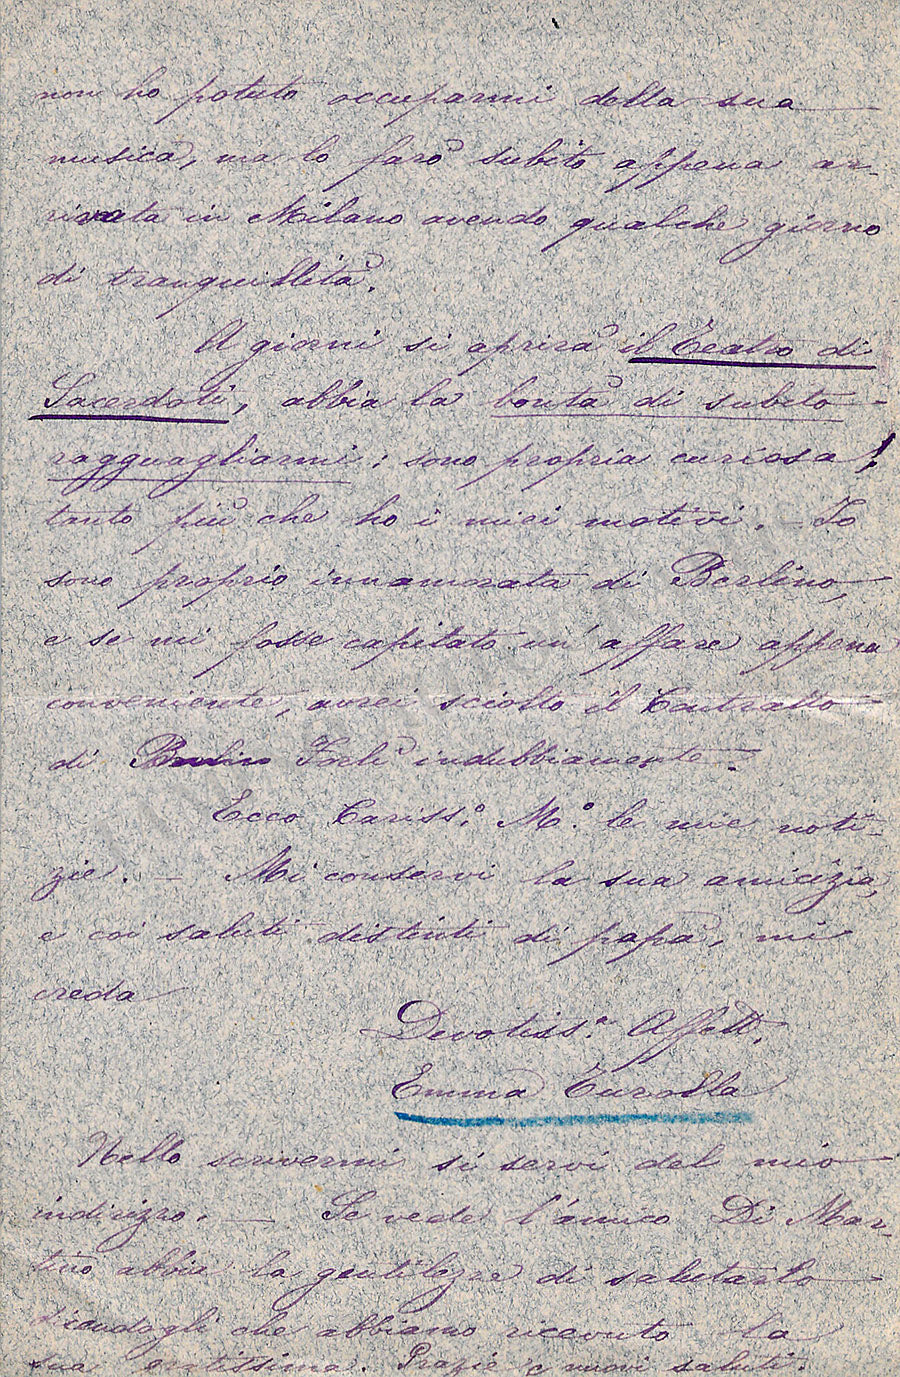 non ho potuto occuparmi della sua
musica, ma lo farò subito appena ar-
rivata in Milano avendo qualche giorno
di tranquillità.
A giorni si aprirà il Teatro di
Sacerdoti, abbia la bontà di subito
ragguagliarmi; sono propria curiosa!
tanto più che ho i miei motivi. - Io
sono proprio innamorata di Berlino,
e se mi fosse capitato un'affare appena
conveniente, avrei sciolto il Contratto
di Forlì indubbiamente.
Ecco Cariss:o M.o le mie noti-
zie. - Mi conservi la sua amicizia,
e coi saluti distinti di papà, mi
creda
Devotiss:a Affett.
Emma Turolla
Nello scrivermi si servi del mio
indirizzo. - Se vede l'amico Di Mar-
tino abbia la gentilezze di salutarlo
dicendogli che abbiamo ricevuto la
sua gratissima. Grazie e nuovi saluti.